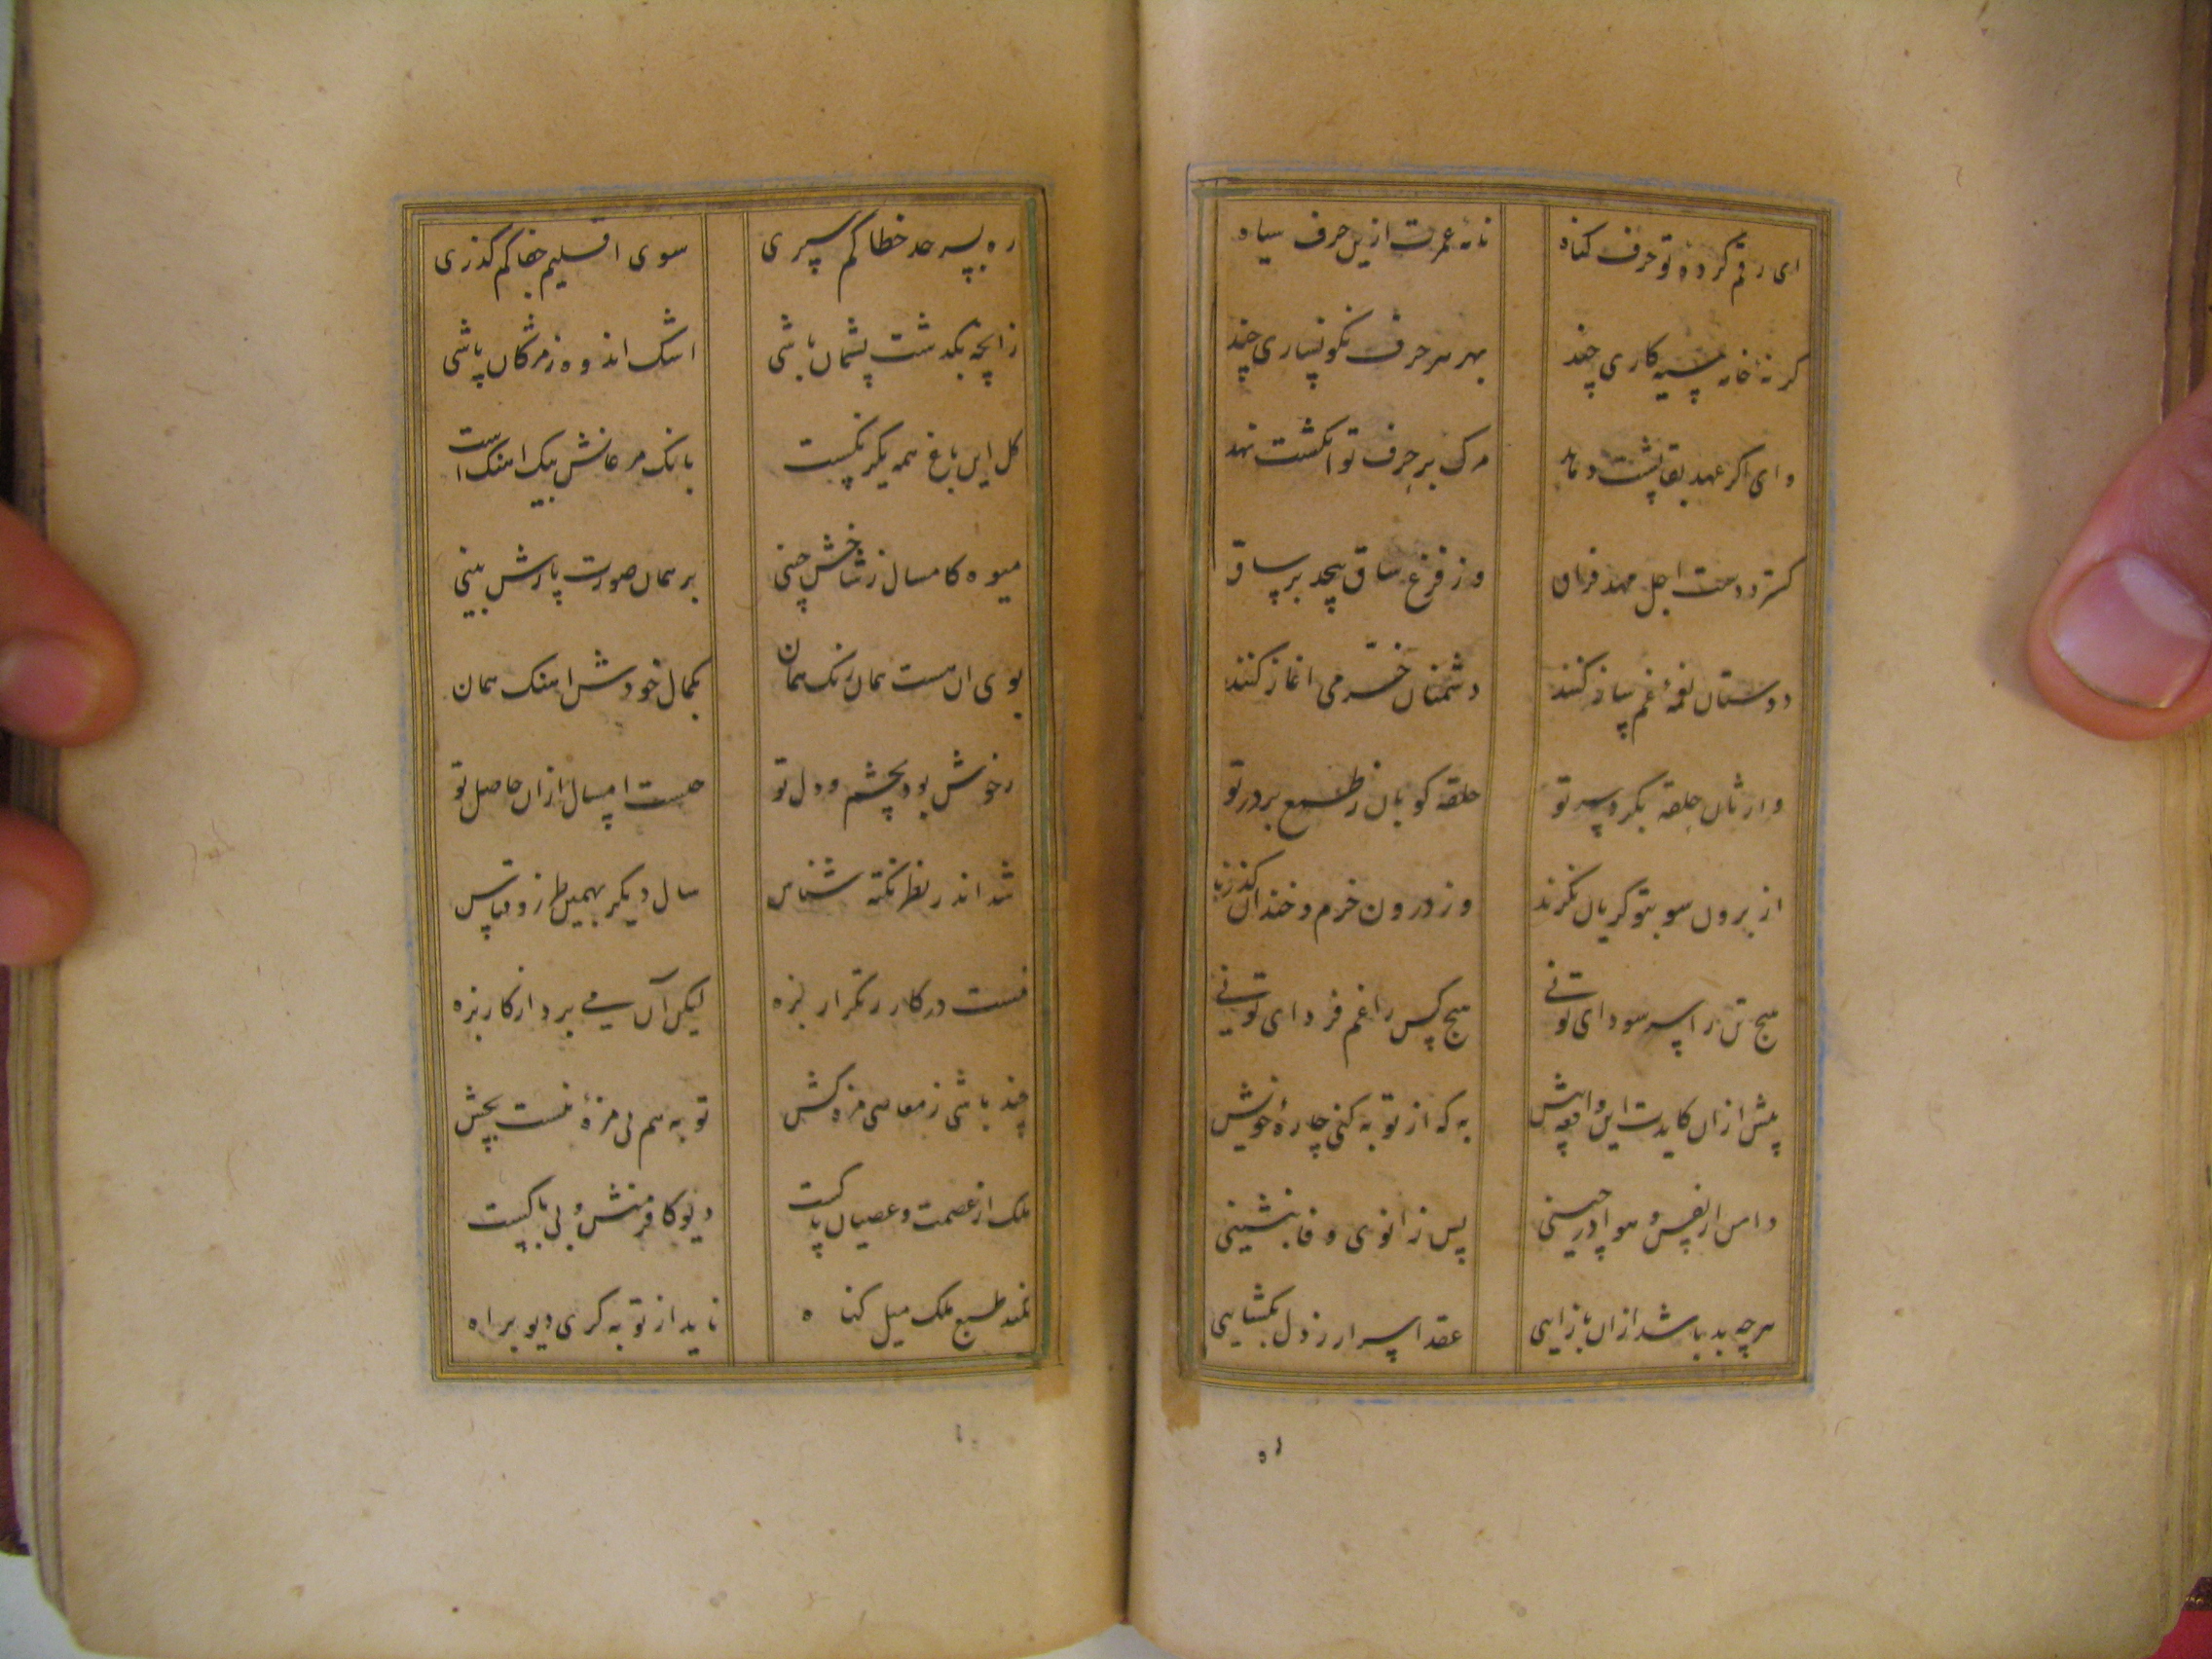 ای رقم کرده تو حرف کناه نامه عمرت ازین حرف سیاه
کر نه خانه سیه کاری چند بهر هر حرف نکونساری چند
وای اکر عهد بقا پشت دهد مرک بر حرف تو انکشت نهد
کسترد دست اجل مهد فراق وز فزع ساق بپیچد بر ساق
دوستان نغمهٔ غم ساز کنند دشمنان خرمی اغاز کنند
وارثان حلقه بکرد سر تو حلقه کوبان ز طمع بر در تو
از برون سو بتو کریان نکرند وز درون خرم و خندان کذرند
هیچ تن را سر سودای تو نی هیچ کس را غم فردای تو نی
پیش ازان کایدت این واقعه پیش به که از توبه کنی چارهٔ خویش
دامن از نفس و هوا درچینی پس زانوی وفا بنشینی
هر چه بد باشد ازان بازایی عقد اسرار ز دل بکشایی
ره بسر حد خطا کم سپری سوی اقلیم جفا کم کذری
زانچه بکذشت پشیمان باشی اشک اندوه ز مژکان پاشی
کل این باغ همه یکرنکست بانک مرغانش بیک اهنک است
میوه کامسال ز شاخش چینی بر همان صورت پارش بینی
بوی ان هست همان رنک همان بکمال خودش اهنک همان
خوش بود بچشم و دل تو چیست امسال ازان حاصل تو
شد اندر نظر نکته شناس سال دیکر بهمین طرز و قیاس
نیست در کار ز تکرار بزه لیکن آن می برد از کار بزه
چند باشی ز معاصی مزه کش توبه هم بی مزهٔ نیست بچش
ملک از عصمت و عصیان پاکست دیو کافر منش و بی باکیست
نکند طبع ملک میل کناه ناید از توبه کری دیو براه